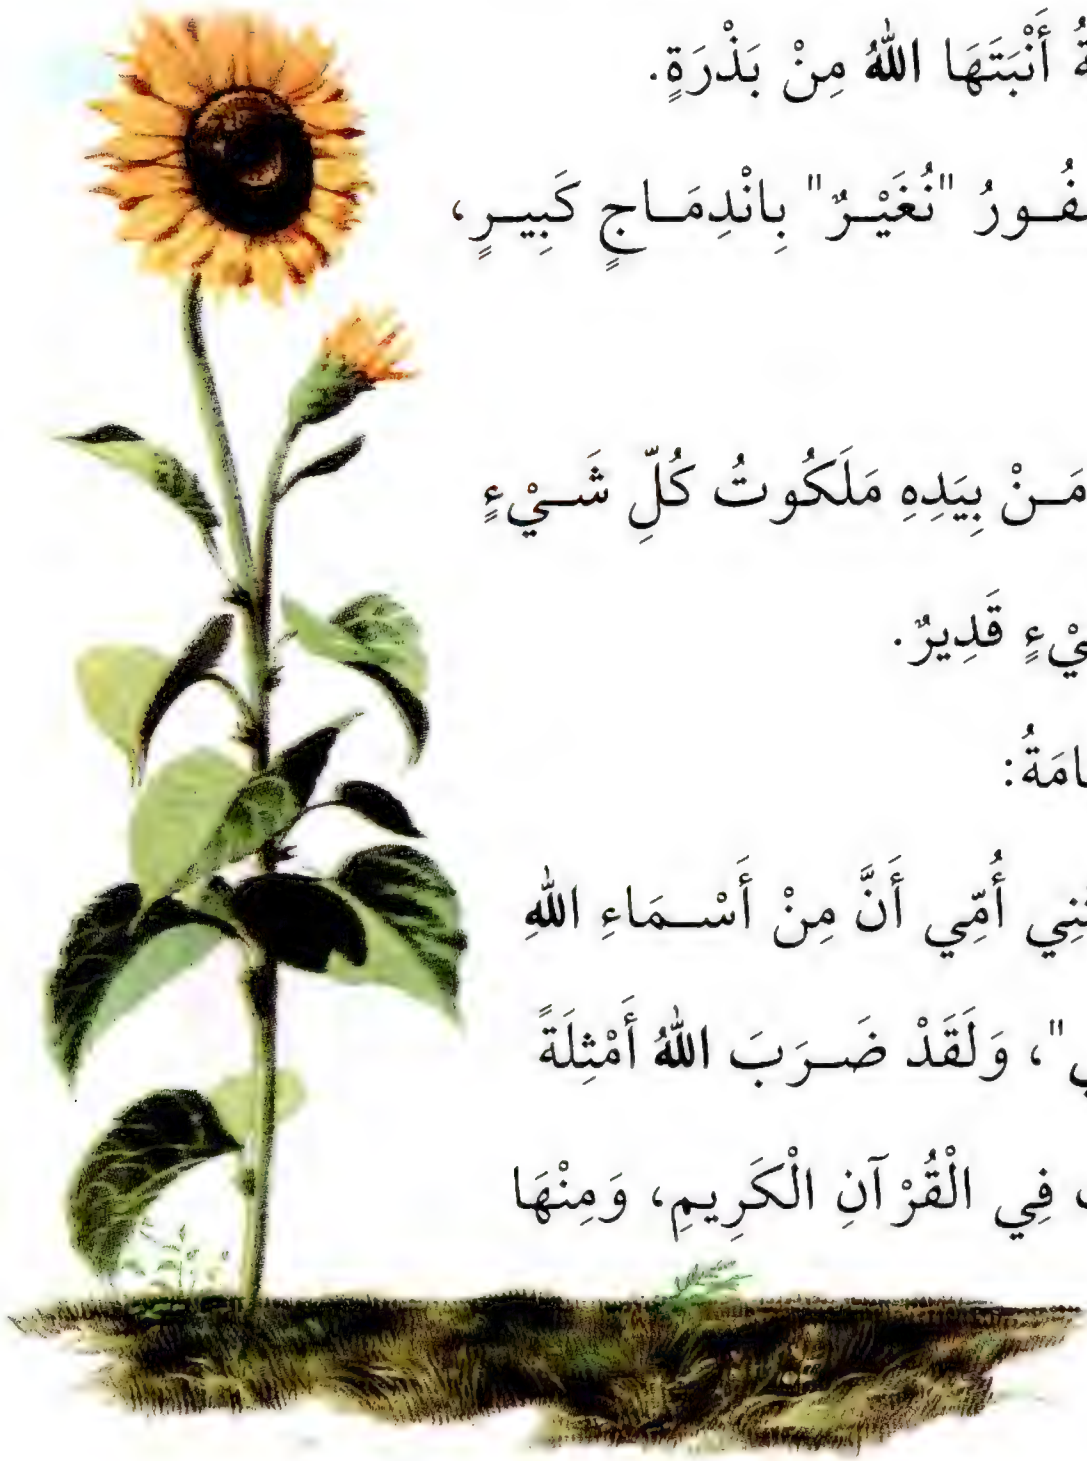 أَنْبَتَهَا اللهُ مِنْ بَذْرَةٍ.
"نُغَيْرٌ" بِانْدِمَاجٍ كَبِيرٍ،
مَنْ بِيَدِهِ مَلَكُوتُ كُلِّ شَيْءٍ
قَدِيرٌ.
أُمِّي أَنَّ مِنْ أَسْمَاءِ اللهِ
"، وَلَقَدْ ضَرَبَ اللهُ أَمْثِلَةً
فِي الْقُرْآنِ الْكَرِيمِ، وَمِنْهَا